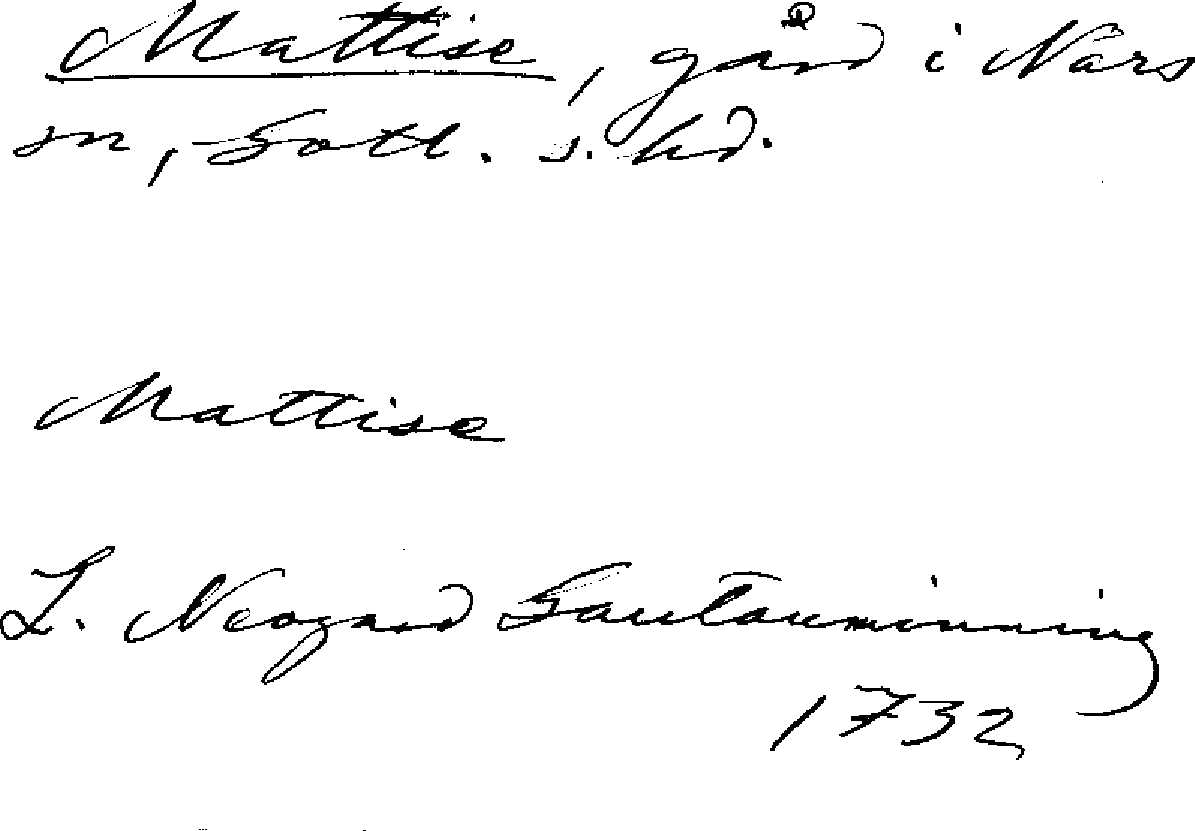 Mattise, gård i Närs
sn, Gotl. s. hd.
Mattise
L. Neogard Gautauminning
1732